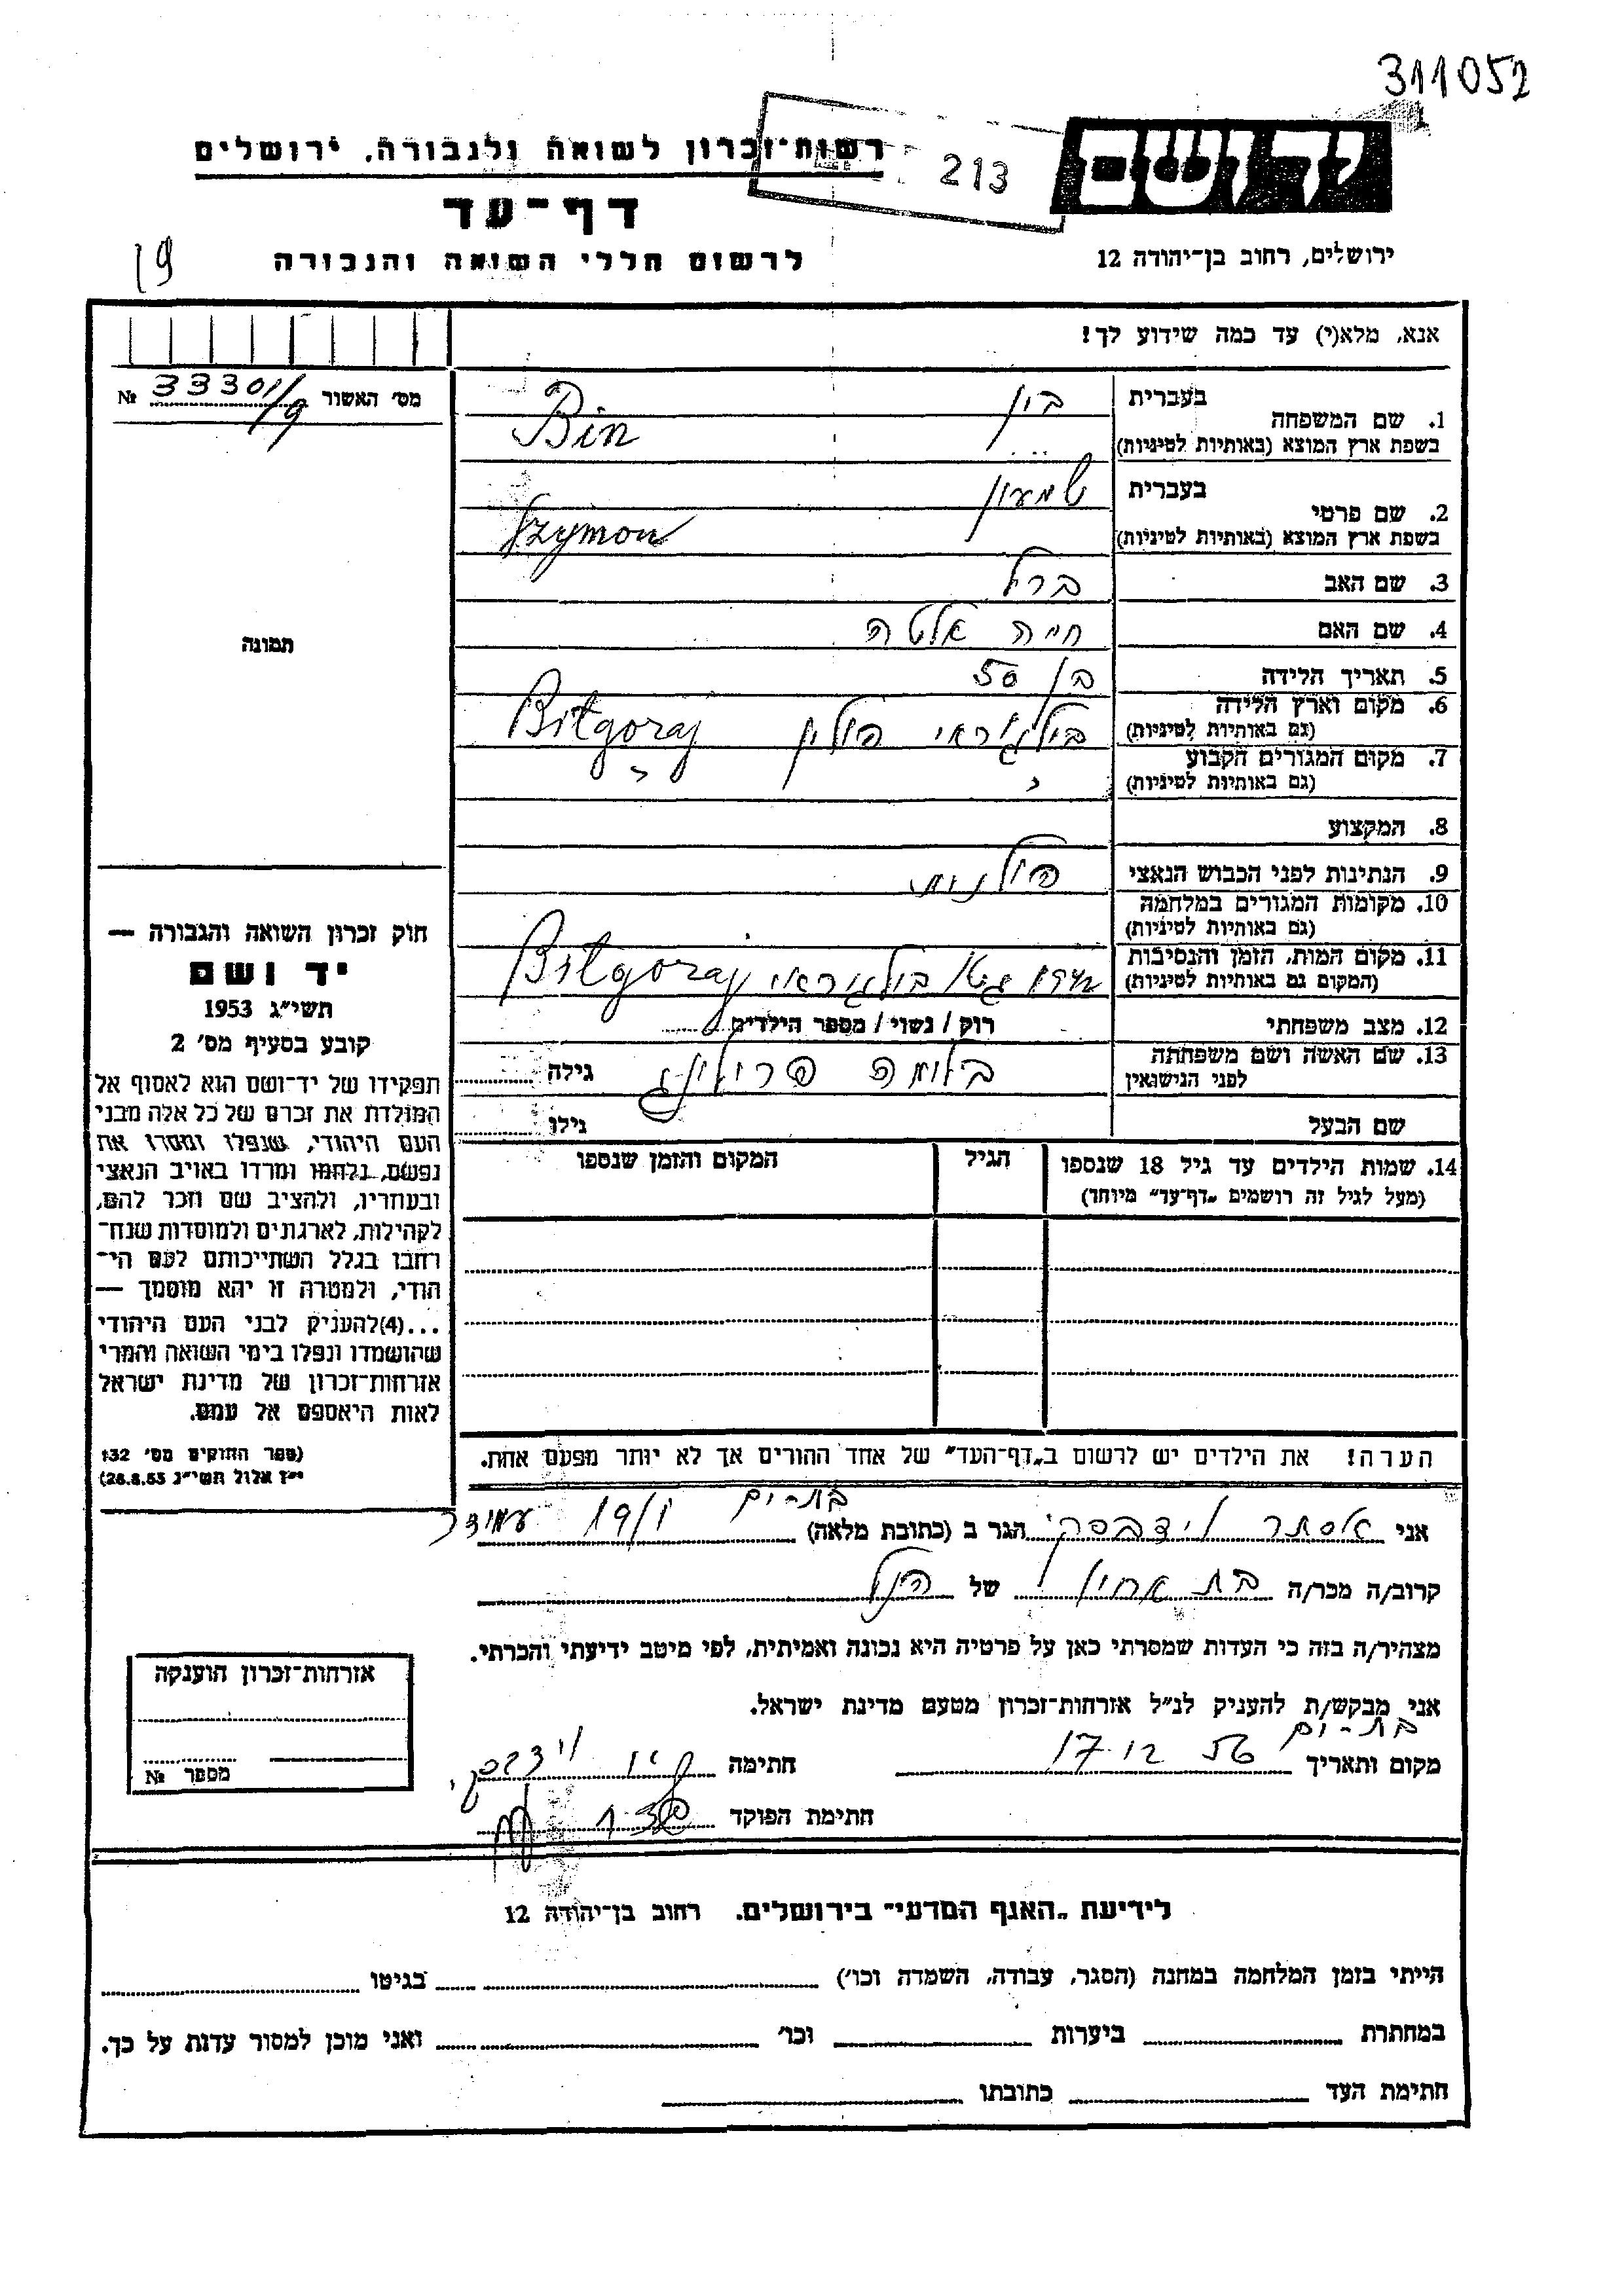 311052
רשות־זכרון לשואה ולגבורה, ירושלים
213
יד ושם
דף־עד
לרשום חללי השואה והגבורה
ירושלים, רחוב בן־יהודה 12
19
אנא, מלא(י) עד כמה שידוע לך!
מס׳ האשור 33301/9 №
1. שם המשפחה
בעברית בין
בשפת ארץ המוצא (באותיות לטיניות) Bin
2. שם פרטי
בעברית שמעון
בשפת ארץ המוצא (באותיות לטיניות) Szymon
3. שם האב ברל
4. שם האם חיה אלטה
5. תאריך הלידה בן 50
6. מקום וארץ הלידה
(גם באותיות לטיניות) בילגוראי פולין Biłgoraj
7. מקום המגורים הקבוע
(גם באותיות לטיניות)
8. המקצוע
9. הנתינות לפני הכבוש הנאצי פולנית
10. מקומות המגורים במלחמה
(גם באותיות לטיניות)
11. מקום המות, הזמן והנסיבות
(המקום גם באותיות לטיניות) גטו בילגוראי Biłgoraj
12. מצב משפחתי רוק / נשוי / מספר הילדים
13. שם האשה ושם משפחתה
לפני הנישואין בלומה גילה
שם הבעל גילו
14. שמות הילדים עד גיל 18 שנספו
(מעל לגיל זה רושמים „דף־עד״ מיוחד)
הגיל
המקום והזמן שנספו
הערה! את הילדים יש לרשום ב„דף־העד״ של אחד ההורים אך לא יותר מפעם אחת.
תמונה
חוק זכרון השואה והגבורה —
יד ושם
תשי״ג 1953
קובע בסעיף מס׳ 2
תפקידו של יד־ושם הוא לאסוף אל
המולדת את זכרם של כל אלה מבני
העם היהודי, שנפלו ומסרו את
נפשם, נלחמו ומרדו באויב הנאצי
ובעוזריו, ולהציב שם וזכר להם,
לקהילות, לארגונים ולמוסדות שנח־
רחבו בגלל השתייכותם לעם הי־
הודי, ולמטרה זו יהא מוסמך —
...(4)להעניק לבני העם היהודי
שהושמדו ונפלו בימי השואה והמרי
אזרחות־זכרון של מדינת ישראל
לאות היאספם אל עמם.
(ספר החוקים מס׳ 132
י״ז אלול תשי״ג 28.8.53)
בת-ים
אני אסתר הגר ב (כתובת מלאה) 19/
קרוב/ה מכר/ה בת אחיו של הנ״ל
מצהיר/ה בזה כי העדות שמסרתי כאן על פרטיה היא נכונה ואמיתית, לפי מיטב ידיעתי והכרתי.
אני מבקש/ת להעניק לנ״ל אזרחות־זכרון מטעם מדינת ישראל.
בת-ים
מקום ותאריך 56 12 17 חתימה
חתימת הפוקד
אזרחות־זכרון הוענקה
מספר №
לידיעת „האגף המדעי״ בירושלים. רחוב בן־יהודה 12
הייתי בזמן המלחמה במחנה (הסגר, עבודה, השמדה וכו׳) בגיטו
במחתרת ביערות וכו׳ ואני מוכן למסור עדות על כך.
חתימת העד כתובתו